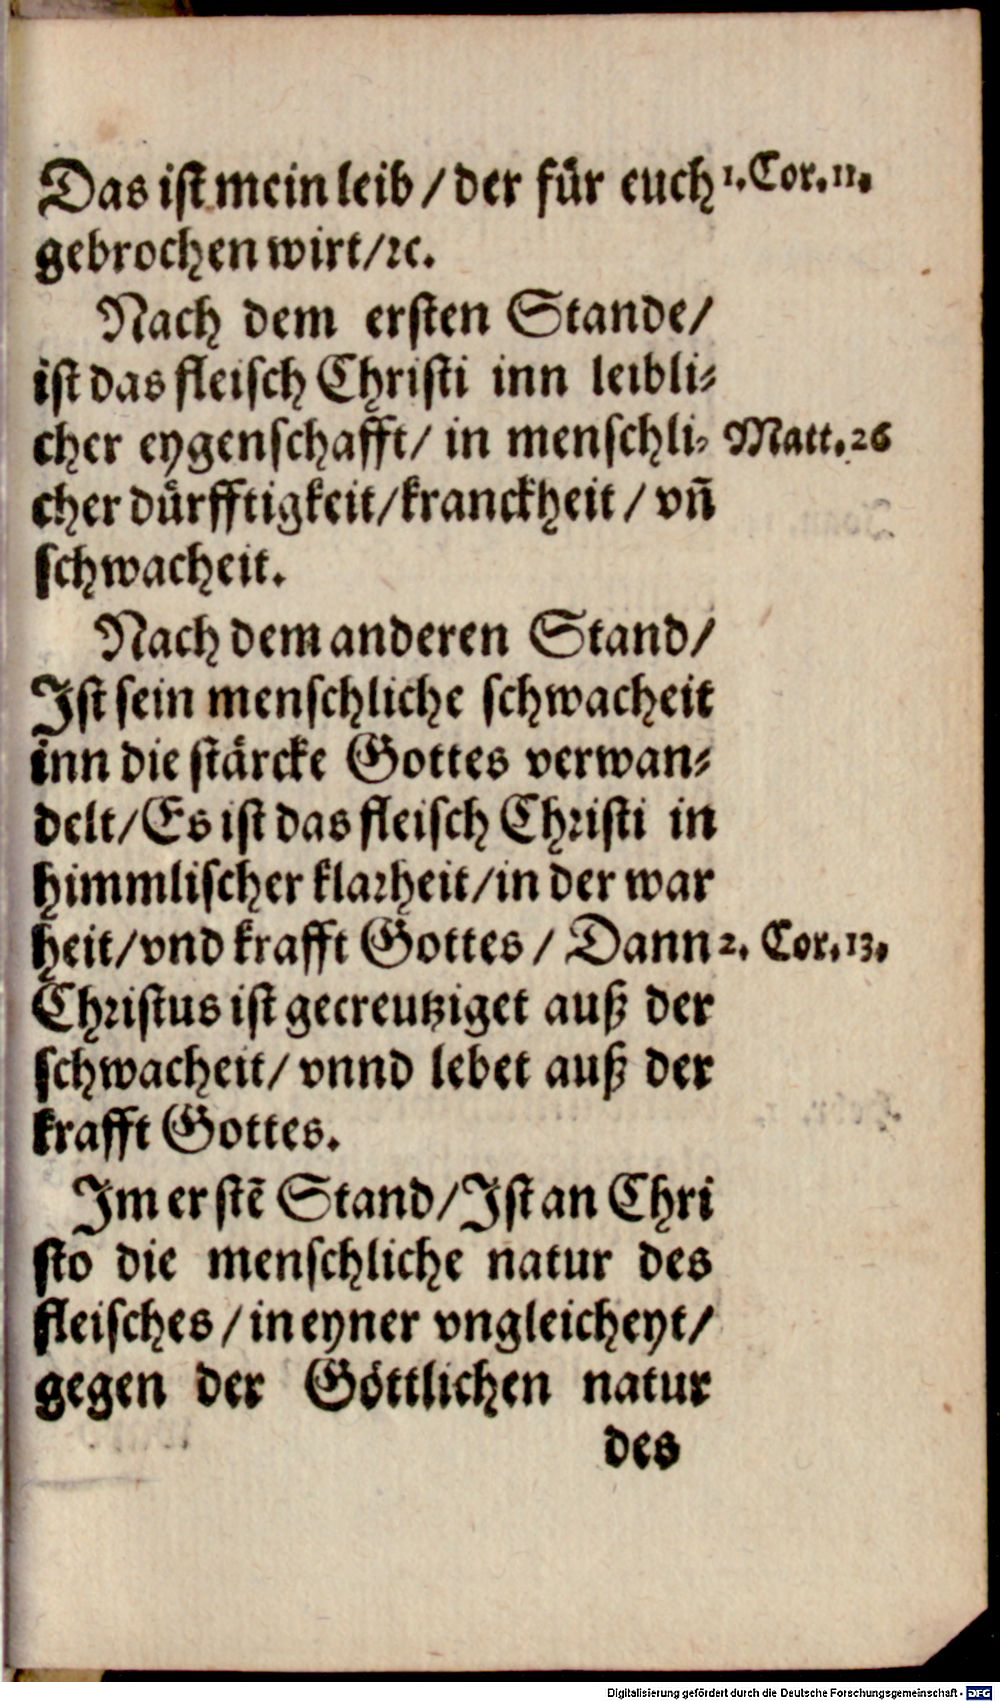 Das ist mein leib / der für euch 1. Cor. 11.
gebrochen wirt / ꝛc.
Nach dem ersten Stande /
ist das fleisch Christi inn leibli⸗
cher eygenschafft / in menschli⸗ Matt. 26
cher dürfftigkeit / kranckheit / vn̄
schwacheit.
Nach dem anderen Stand /
Ist sein menschliche schwacheit
inn die stärcke Gottes verwan⸗
delt / Es ist das fleisch Christi in
himmlischer klarheit / in der war
heit / vnd krafft Gottes / Dann 2. Cor. 13.
Christus ist gecreutziget auß der
schwacheit / vnnd lebet auß der
krafft Gottes.
Im erstē Stand / Ist an Chri
sto die menschliche natur des
fleisches / in eyner vngleicheyt /
gegen der Göttlichen natur
des
Digitalisierung gefördert durch die Deutsche Forschungsgemeinschaft - DFG